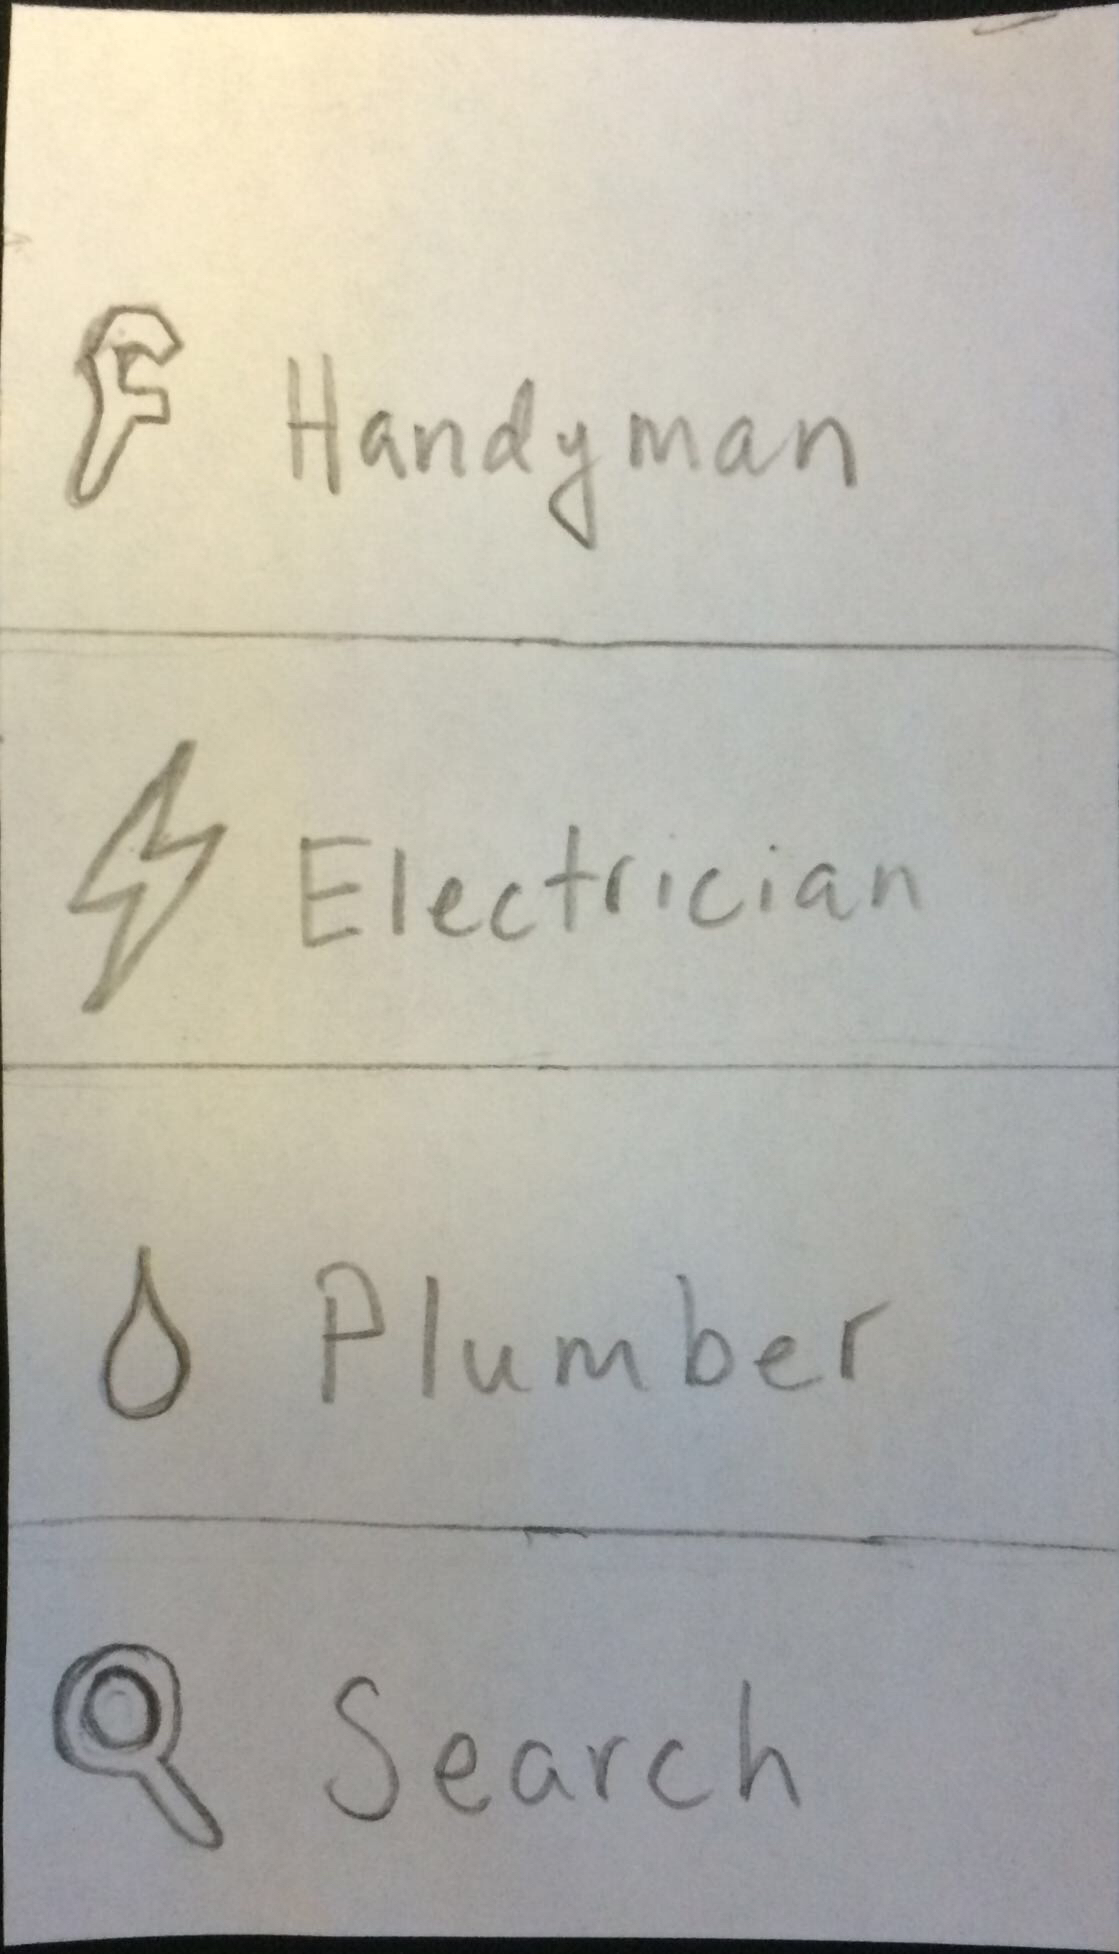 Handyman
Electrician
Plumber
Search